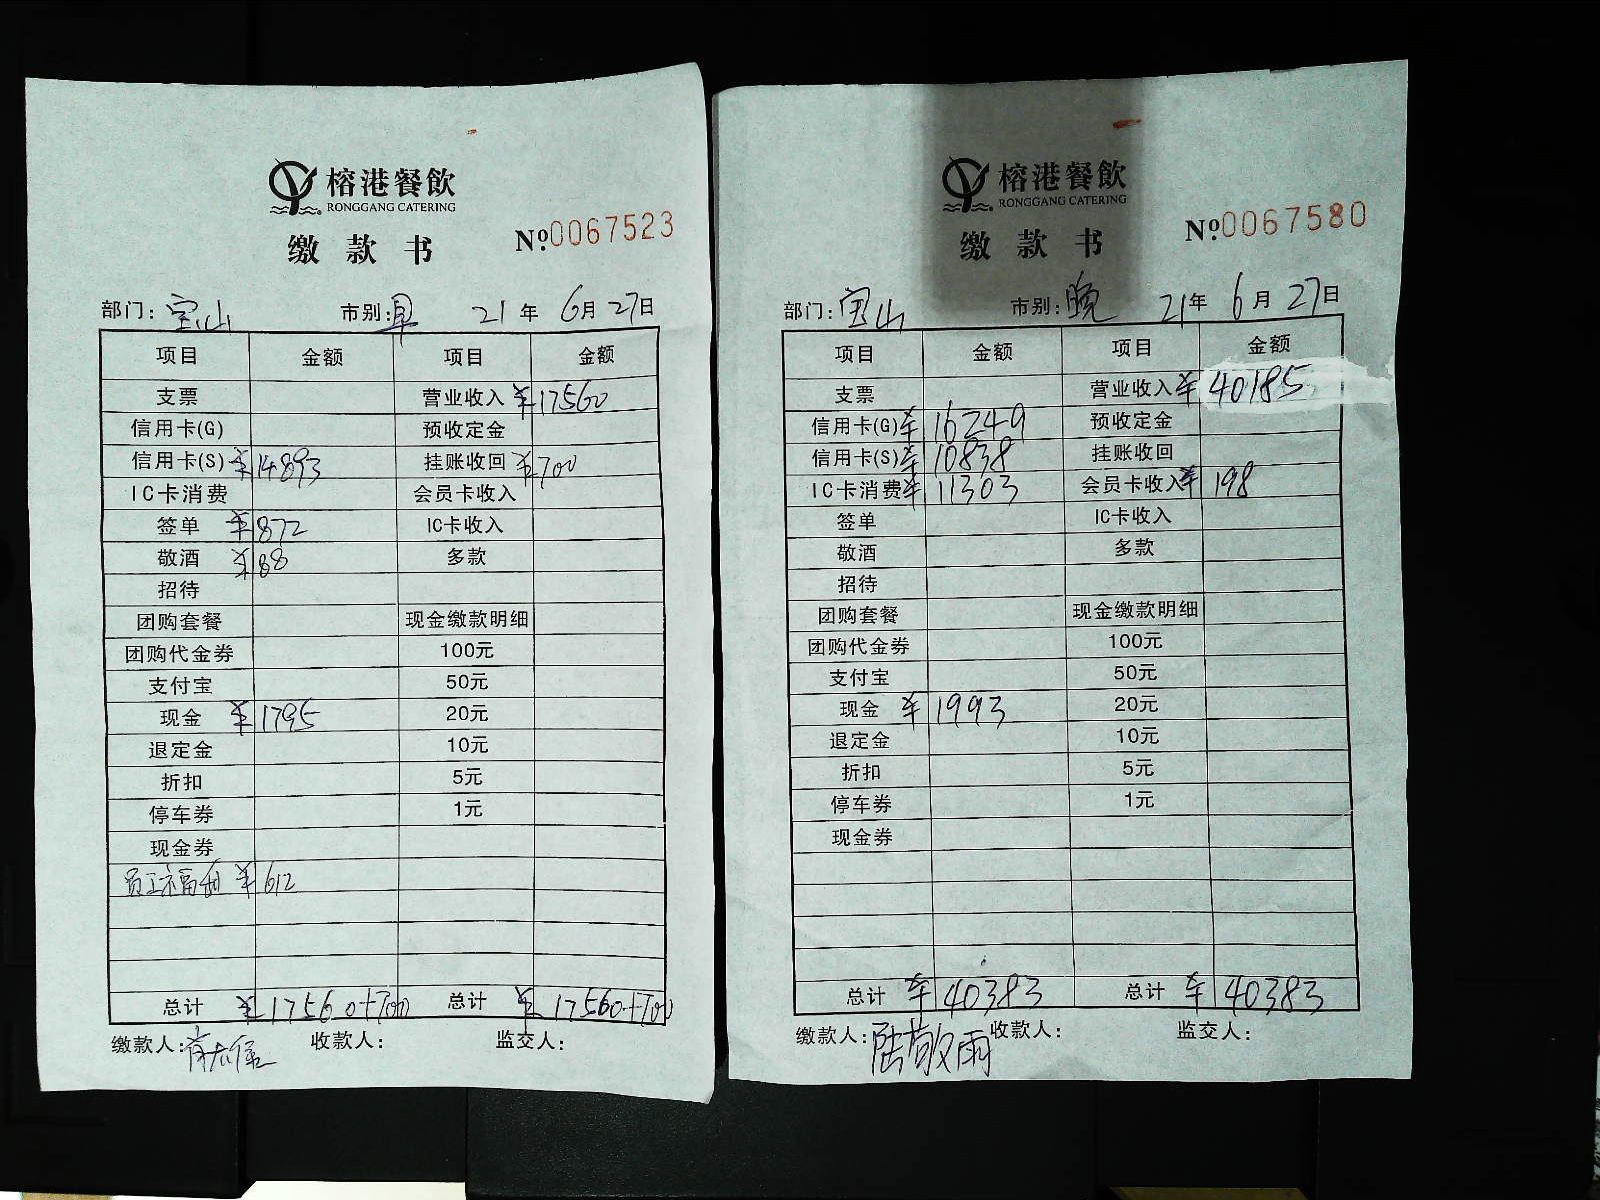 榕港餐飲
RONGGANG CATERING
缴款书 No 0067523
部门：宝山 市别：早 21年6月27日
项目 金额 项目 金额
支票 营业收入 ¥17560
信用卡(G) 预收定金
信用卡(S) ¥14893 挂账收回 ¥700
IC卡消费 会员卡收入
签单 ¥872 IC卡收入
敬酒 ¥88 多款
招待
团购套餐 现金缴款明细
团购代金券 100元
支付宝 50元
现金 ¥1795 20元
退定金 10元
折扣 5元
停车券 1元
现金券
员工福利 ¥612
总计 ¥17560+700 总计 ¥17560+700
缴款人： 收款人： 监交人：
榕港餐飲
RONGGANG CATERING
缴款书 No 0067580
部门：宝山 市别：晚 21年6月27日
项目 金额 项目 金额
支票 营业收入 ¥40185
信用卡(G) ¥16249 预收定金
信用卡(S) ¥10838 挂账收回
IC卡消费 ¥11303 会员卡收入 ¥198
签单 IC卡收入
敬酒 多款
招待
团购套餐 现金缴款明细
团购代金券 100元
支付宝 50元
现金 ¥1993 20元
退定金 10元
折扣 5元
停车券 1元
现金券
总计 ¥40383 总计 ¥40383
缴款人：陆敬雨 收款人： 监交人：